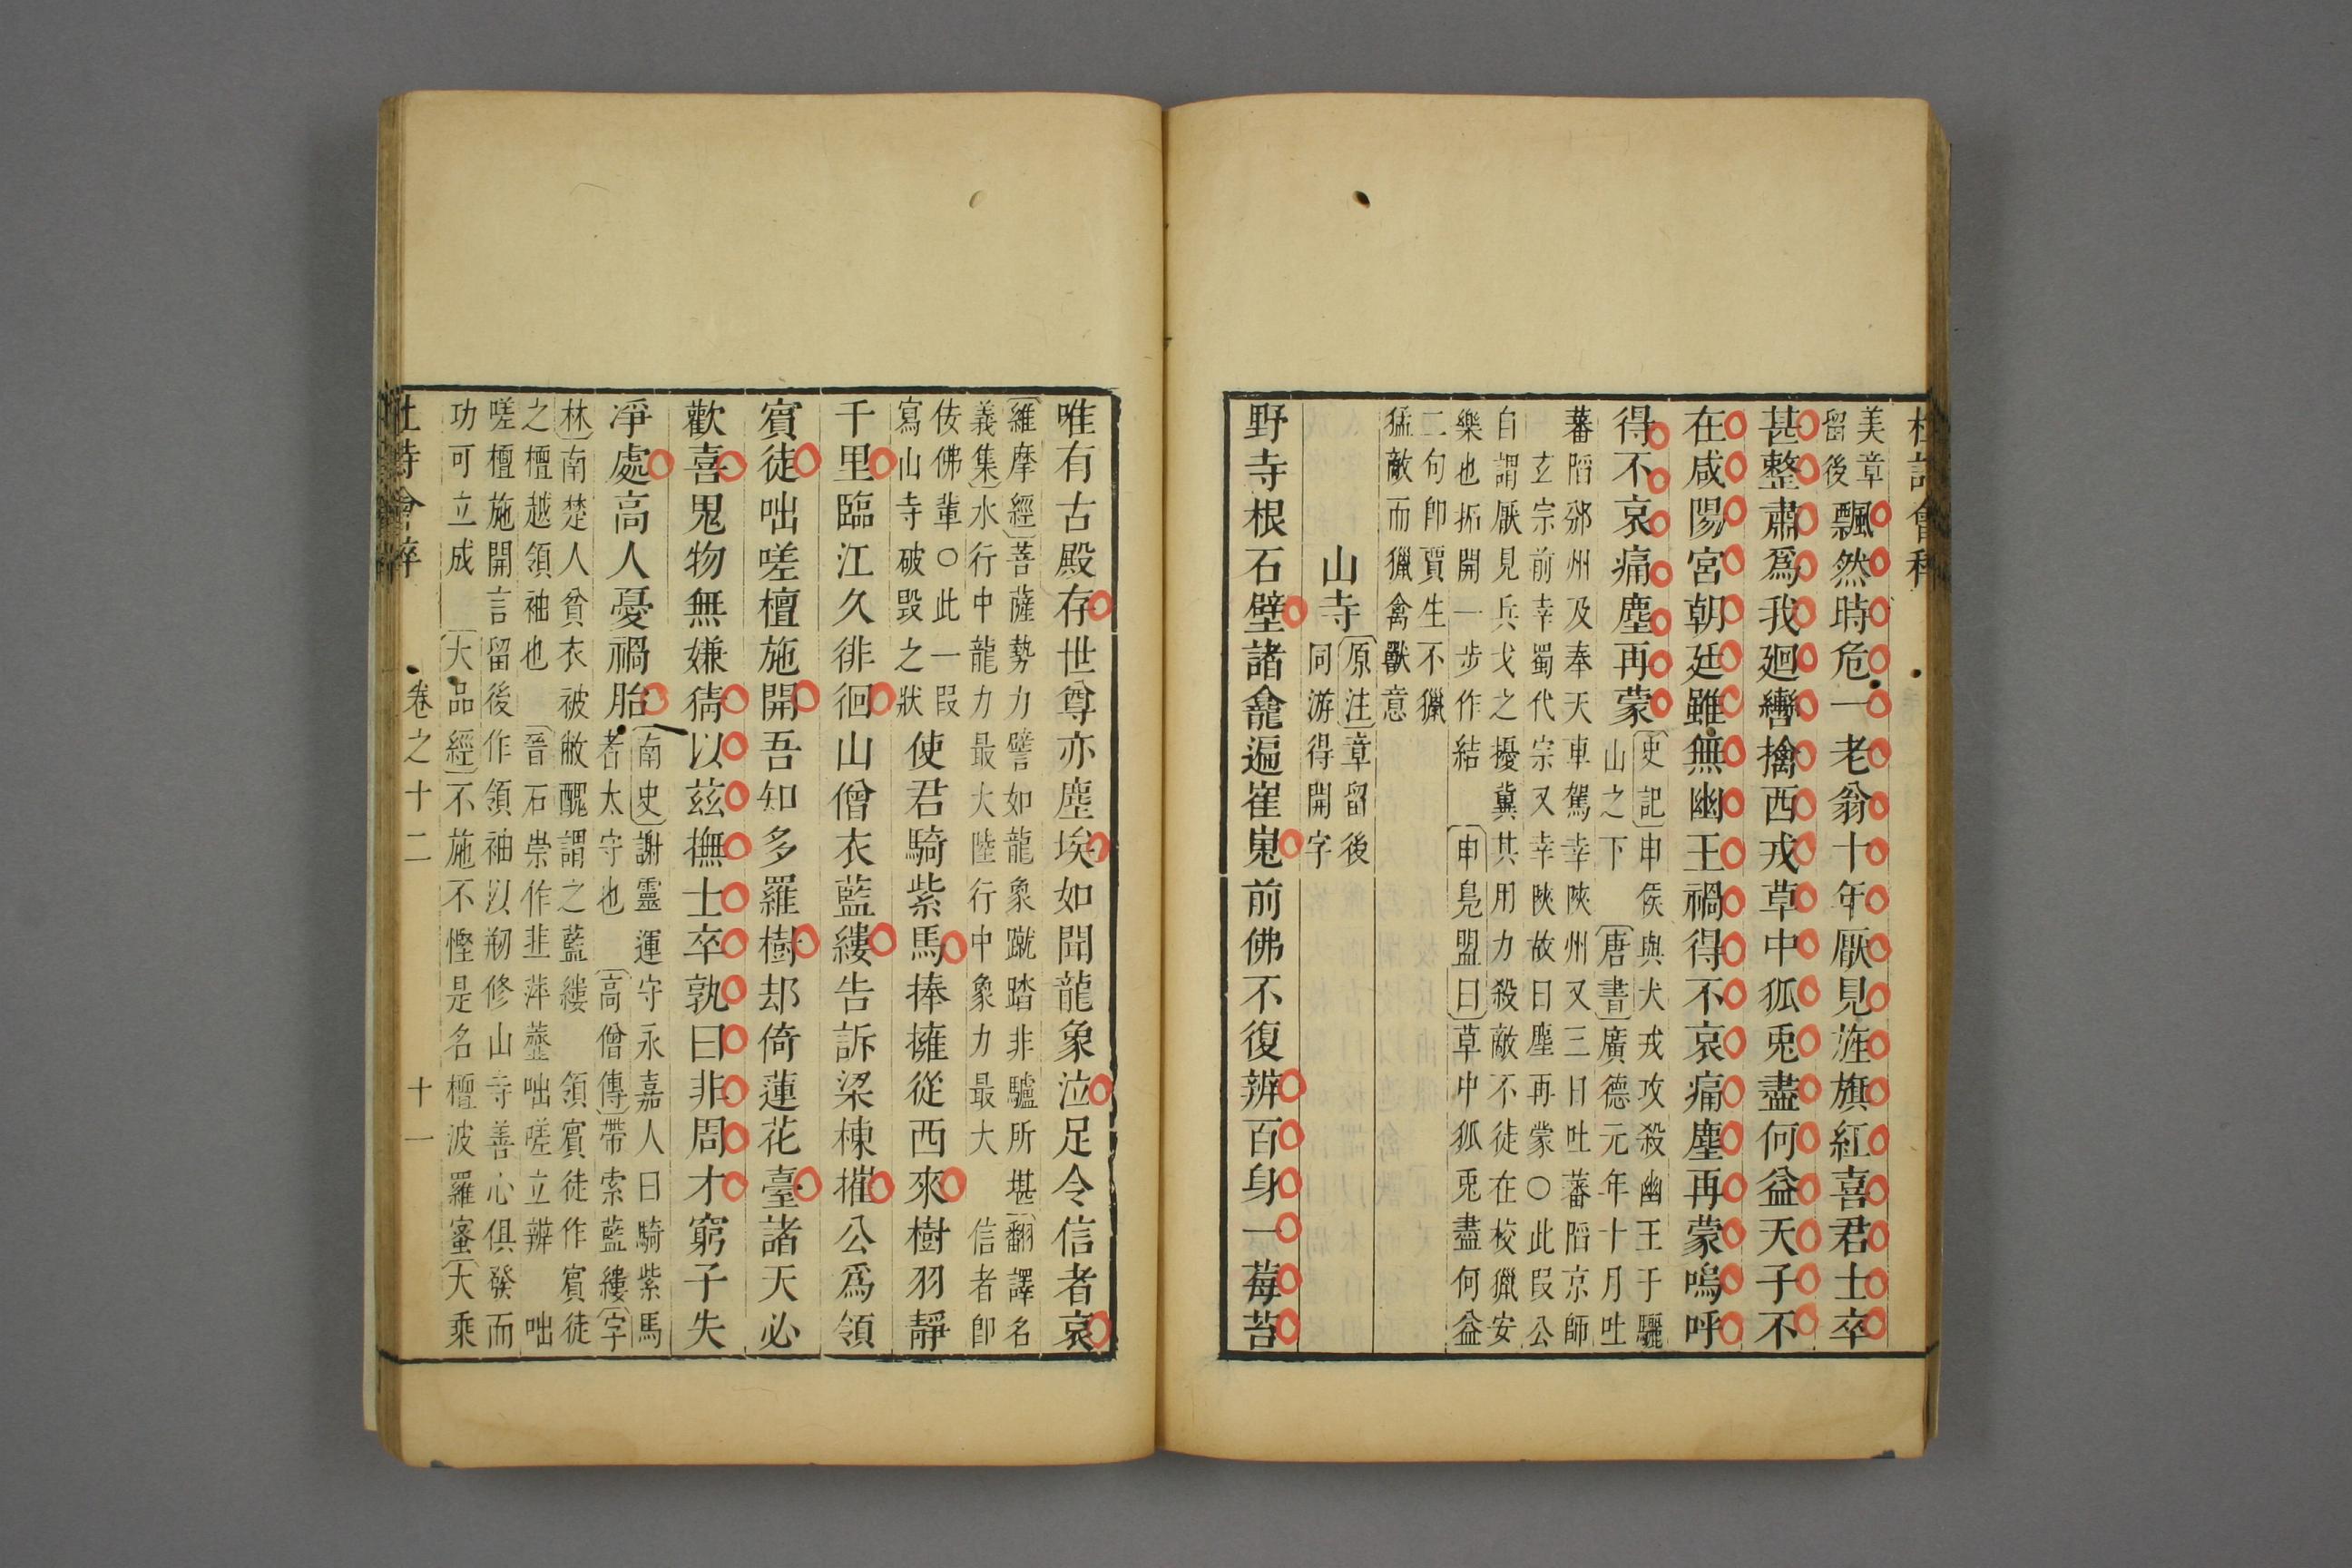 美章
留後
飄然時危一老翁十年厭見旌旗紅喜君士卒
甚整肅爲我廻轡擒西戎草中狐兎盡何益天子不
在咸陽宮朝廷雖無幽王禍得不哀痛塵再蒙嗚呼
得不哀痛塵再蒙
史記申侯與犬戎攻殺幽王于驪
山之下 唐書廣德元年十月吐
蕃陷邠州及奉天車駕幸陝州又三日吐蕃陷京師
玄宗前幸蜀代宗又幸陝故曰塵再蒙○此叚公
自謂厭見兵戈之擾冀其用力殺敵不徒在校獵安
樂也拓開一步作結 申鳧盟曰草中狐兎盡何益
二句卽賈生不獵
猛敵而獵禽獸意
山寺
原注章留後
同游得開字
野寺根石壁諸龕遍崔嵬前佛不復辨百身一莓苔
唯有古殿存世尊亦塵埃如聞龍象泣足令信者哀
維摩經菩薩勢力譬如龍象蹴踏非驢所堪翻譯名
義集水行中龍力最大陸行中象力最大 信者卽
佞佛輩○此一叚
寫山寺破毀之狀
使君騎紫馬捧擁從西來樹羽靜
千里臨江久徘徊山僧衣藍縷告訴梁棟摧公爲領
賓徒咄嗟檀施開吾知多羅樹却倚蓮花臺諸天必
歡喜鬼物無嫌猜以茲撫士卒孰曰非周才窮子失
淨處高人憂禍胎
南史謝靈運守永嘉人曰騎紫馬
者太守也 高僧傳帶索藍縷字
林南楚人貧衣被敝醜謂之藍縷 領賓徒作賓徒
之檀越領袖也 晉石崇作韭蓱虀咄嗟立辨 咄
嗟檀施開言留後作領袖以剏修山寺善心俱發而
功可立成 大品經不施不慳是名檀波羅蜜大乘
杜詩會稡 卷之十二 十一